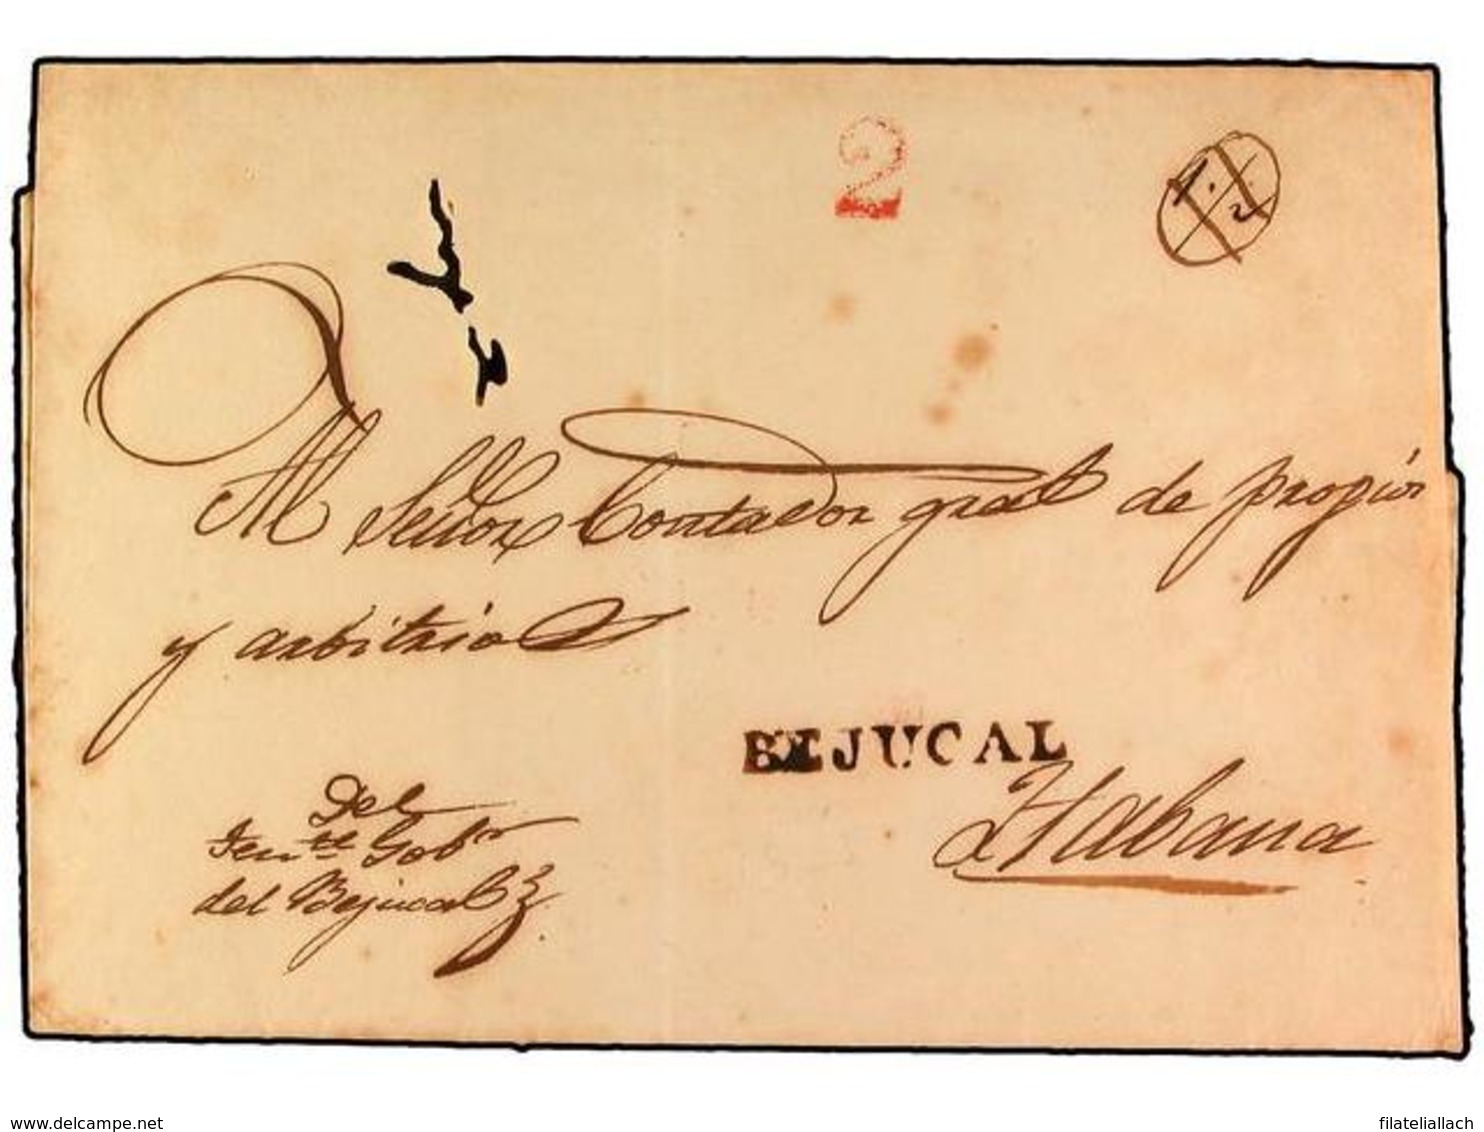 2
1/2
Al Señor Contador gral de propios
y arbitrios
BEJUCAL
Habana
Del
Tente Gobor
del Bejucal
www.delcampe.net
filateliallach